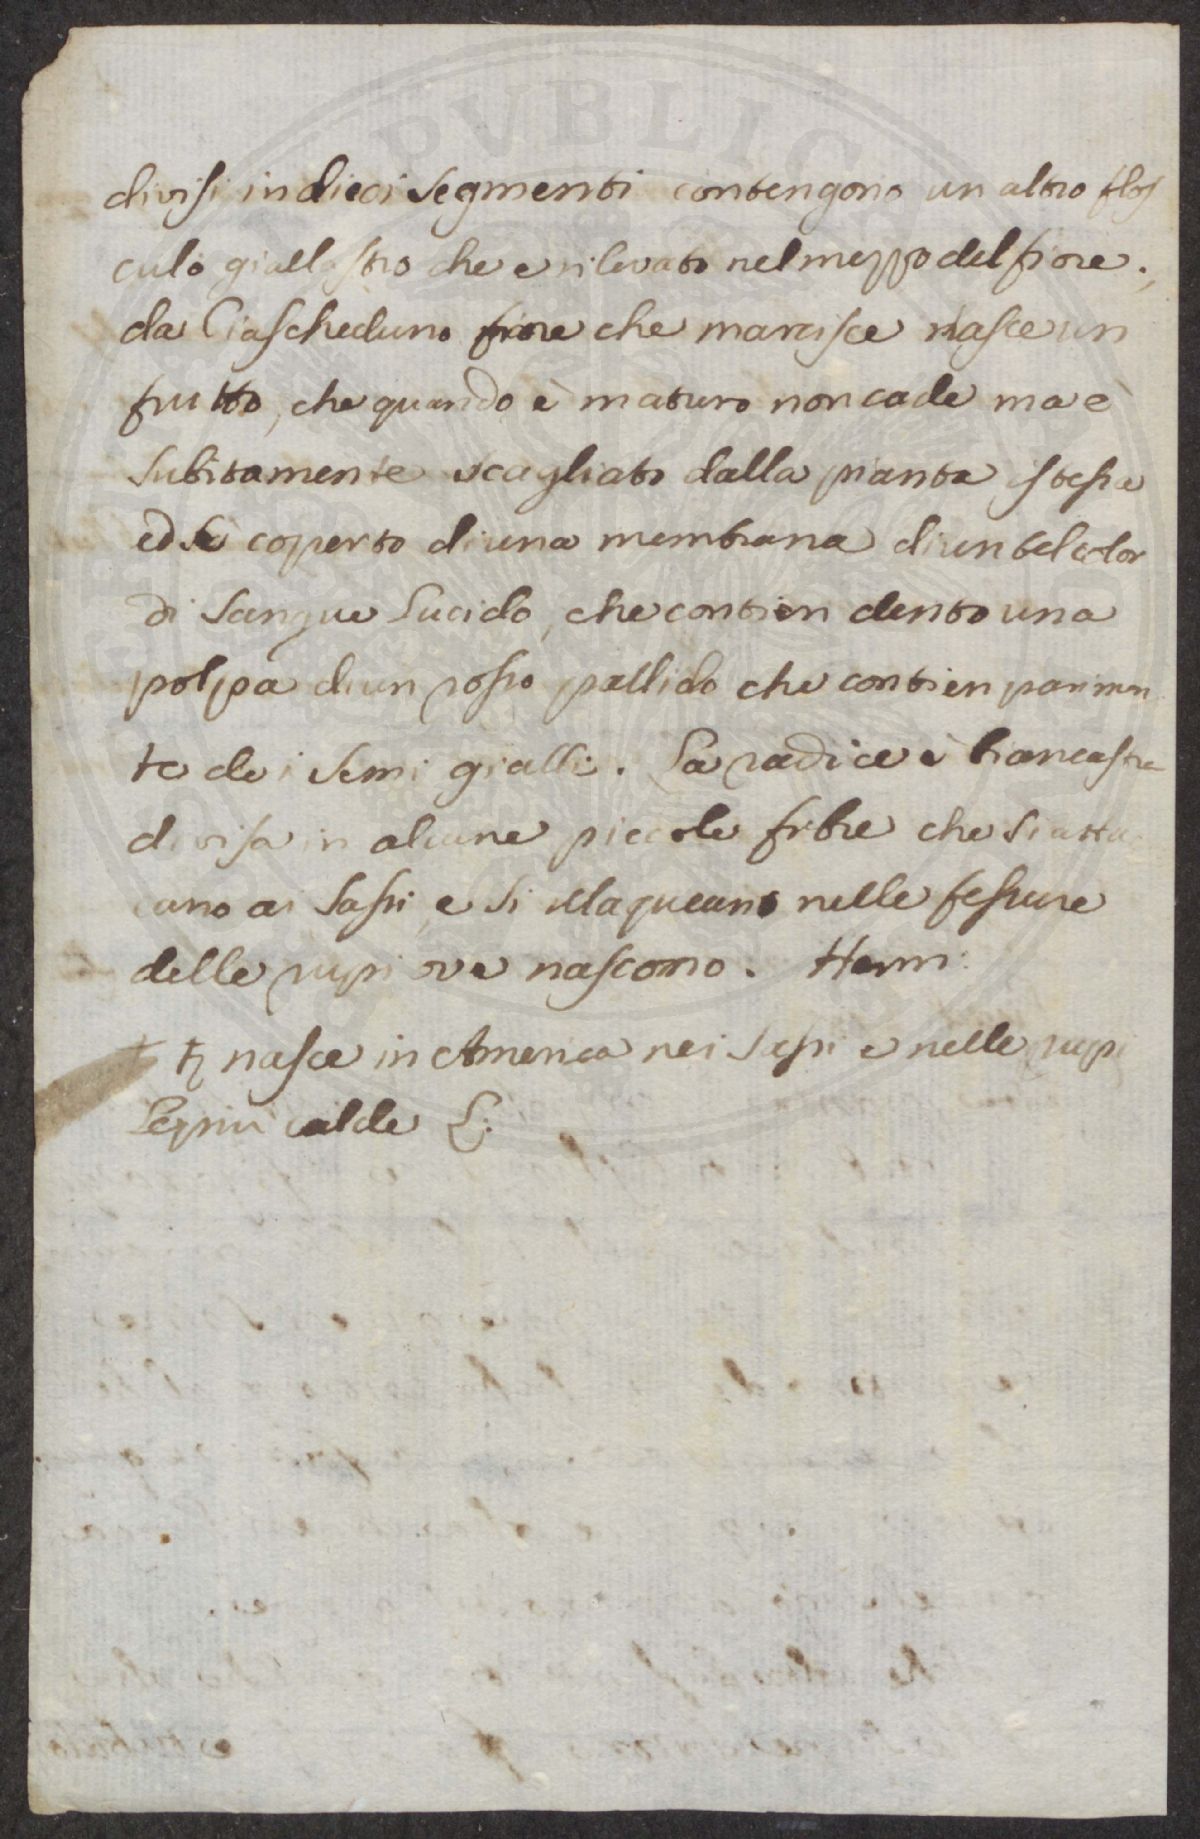 divisi in dieci segmenti contengono un altro flos
culo giallastro che e rilevato nel mezzo del fiore.,
da Ciascheduno fiore che marcisce nasce un
frutto, che quando è maturo non cade ma è
subitamente scagliato dalla pianta istessa
ed è coperto di una membrana di un bel color
di sangue lucido, che contien dentro una
polpa di un rosso pallido che contien parimen
te dei semi gialli. La radice è biancastra
divisa in alcune piccole fibre che si atta
cano ai sassi e si illaqueano nelle fessure
delle rupi ove nascono. Herm:
† ♄ nasce in America nei sassi e nelle rupi
le più calde L:
PVBLICA